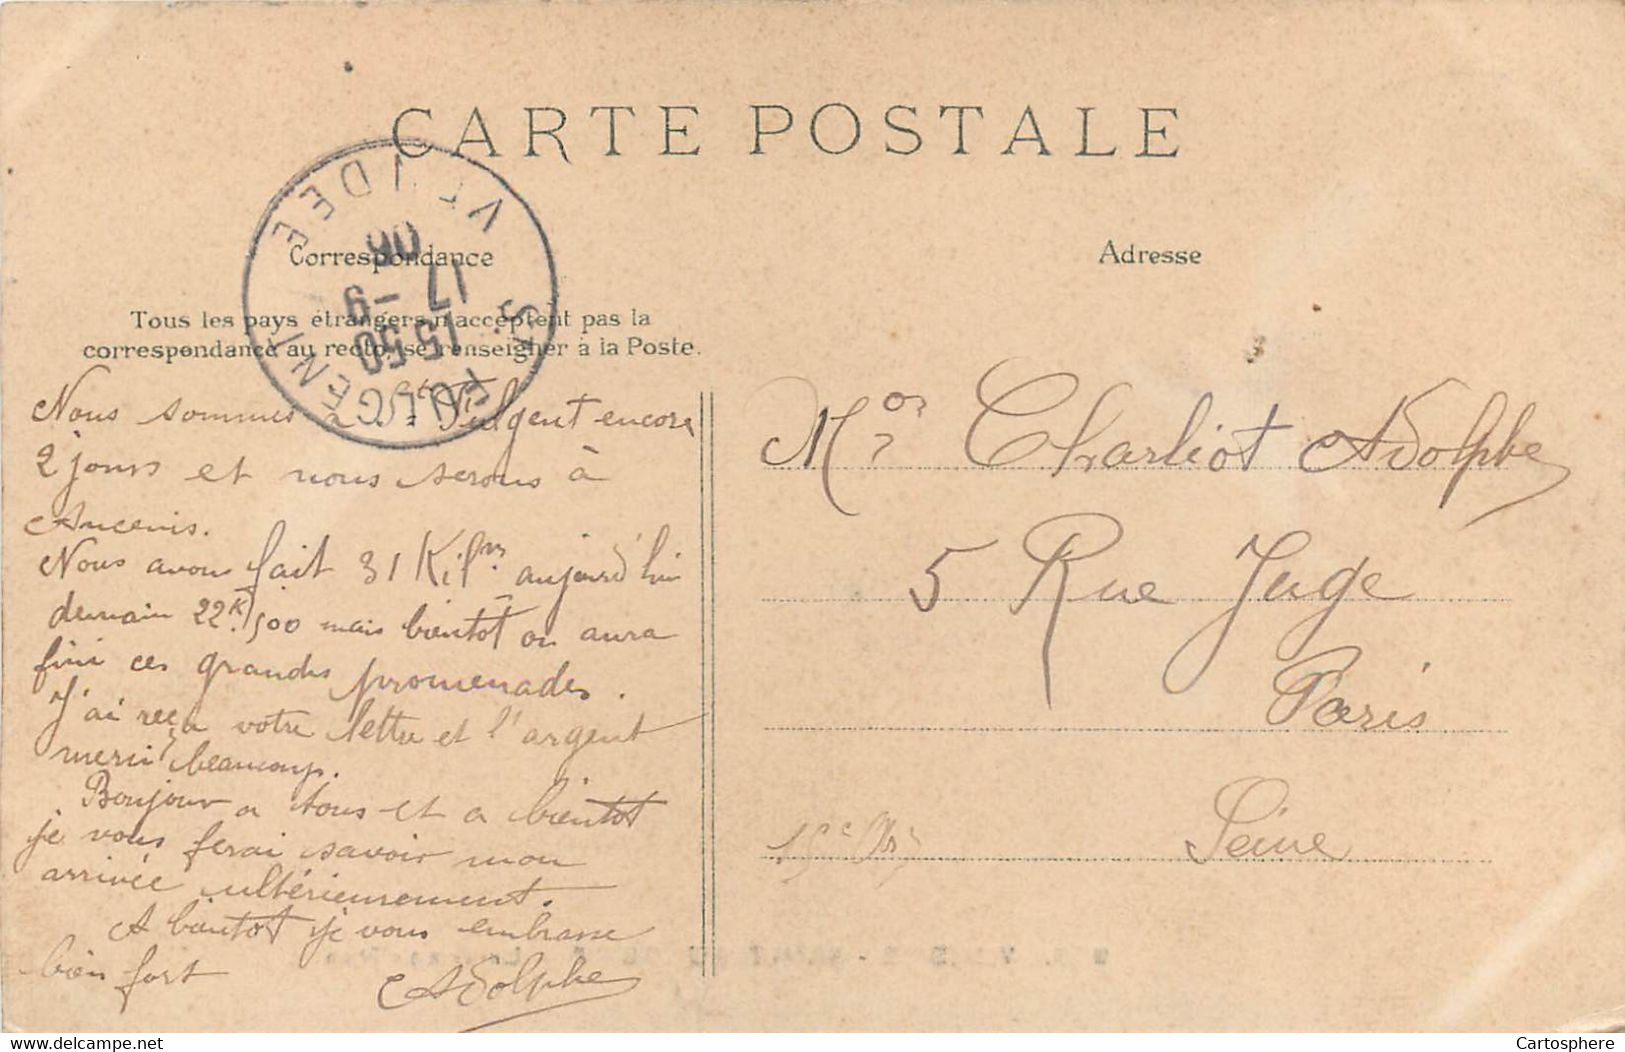 CARTE POSTALE
Correspondance
Adresse
Tous les pays étrangers n'acceptent pas la
correspondance au recto, se renseigner à la Poste.
VENDÉE
ST FULGENT
15 50
17 - 9
06
Nous sommes a St Fulgent encore
2 jours et nous serons à
Ancenis.
Nous avons fait 31 Kilm aujourd'hui
demain 22K,500 mais bientôt on aura
fini ces grandes promenades.
J'ai reçu votre lettre et l'argent
merci beaucoup.
Bonjour a tous et a bientot
je vous ferai savoir mon
arrivée ultérieurement.
A bientot je vous embrasse
bien fort
Adolphe
Mr Charliot Adolphe
5 Rue Juge
Paris
15e Arr
Seine
www.delcampe.net
Cartosphere
Cartosphere